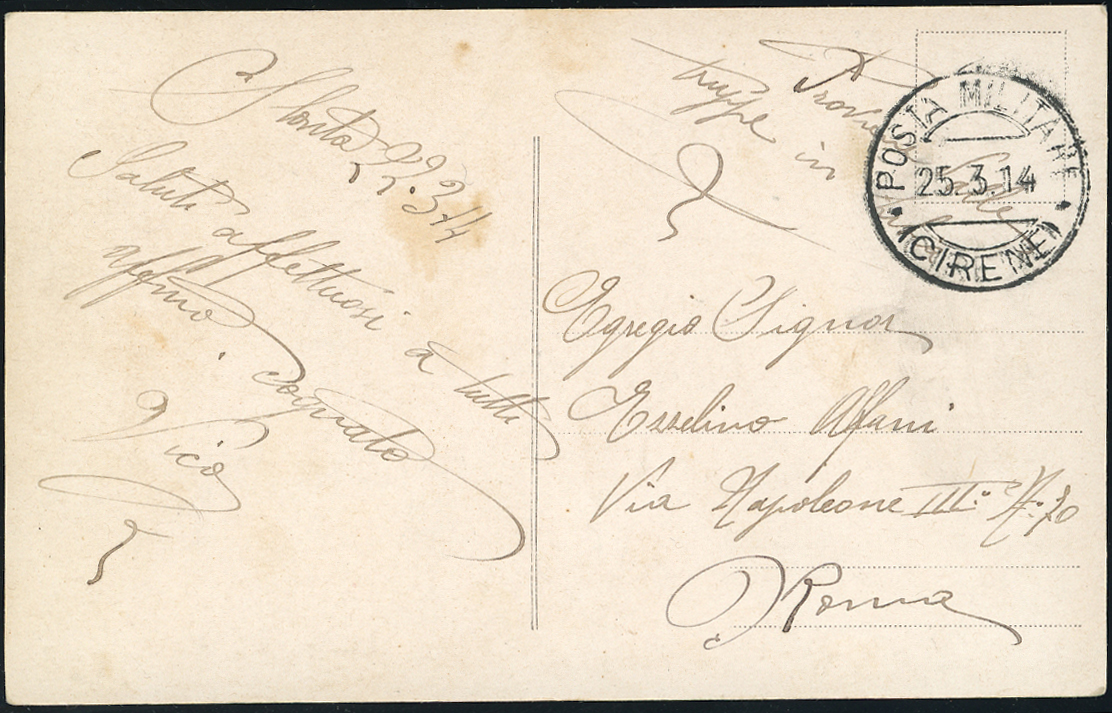 Slonta 22.3.14
Saluti affettuosi a tutti
affmo cognato
Vico
truppe in
POSTA MILITARE
25.3.14
(CIRENE)
Egregio Signor
Ezzelino Affani
Via Napoleone III° N° 70
Roma